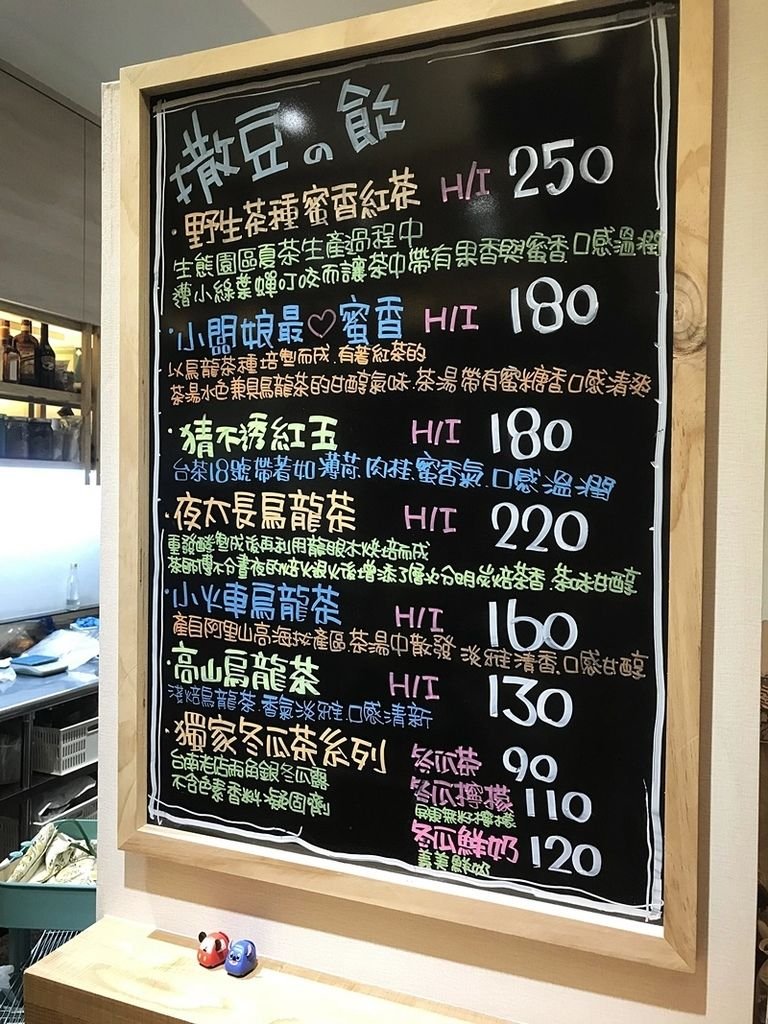 撒豆の飲
·野生茶種蜜香紅茶 H/I 250
生態園區夏茶生產過程中
遭小綠葉蟬叮咬而讓茶中帶有果香與蜜香.口感溫潤
·小闆娘最♡蜜香 H/I 180
以烏龍茶種培製而成.有著紅茶的
茶湯水色兼具烏龍茶的甘醇氣味.茶湯帶有蜜糖香口感清爽
·猜不透紅玉 H/I 180
台茶18號帶著如薄荷.肉桂.蜜香氣.口感溫潤
·夜太長烏龍茶 H/I 220
重發酵製成後再利用龍眼木烘焙而成
茶師傅不分晝夜的焙火退火後增添了層次分明炭焙茶香.茶味甘醇
·小火車烏龍茶 H/I 160
產自阿里山高海拔產區茶湯中散發淡雅清香.口感甘醇
·高山烏龍茶 H/I 130
淺焙烏龍茶.香氣淡雅.口感清新
·獨家冬瓜茶系列
台南老店兩角銀冬瓜露
不含色素香料.凝固劑
冬瓜茶 90
冬瓜檸檬 110
屏東無籽檸檬
冬瓜鮮奶 120
義美鮮奶